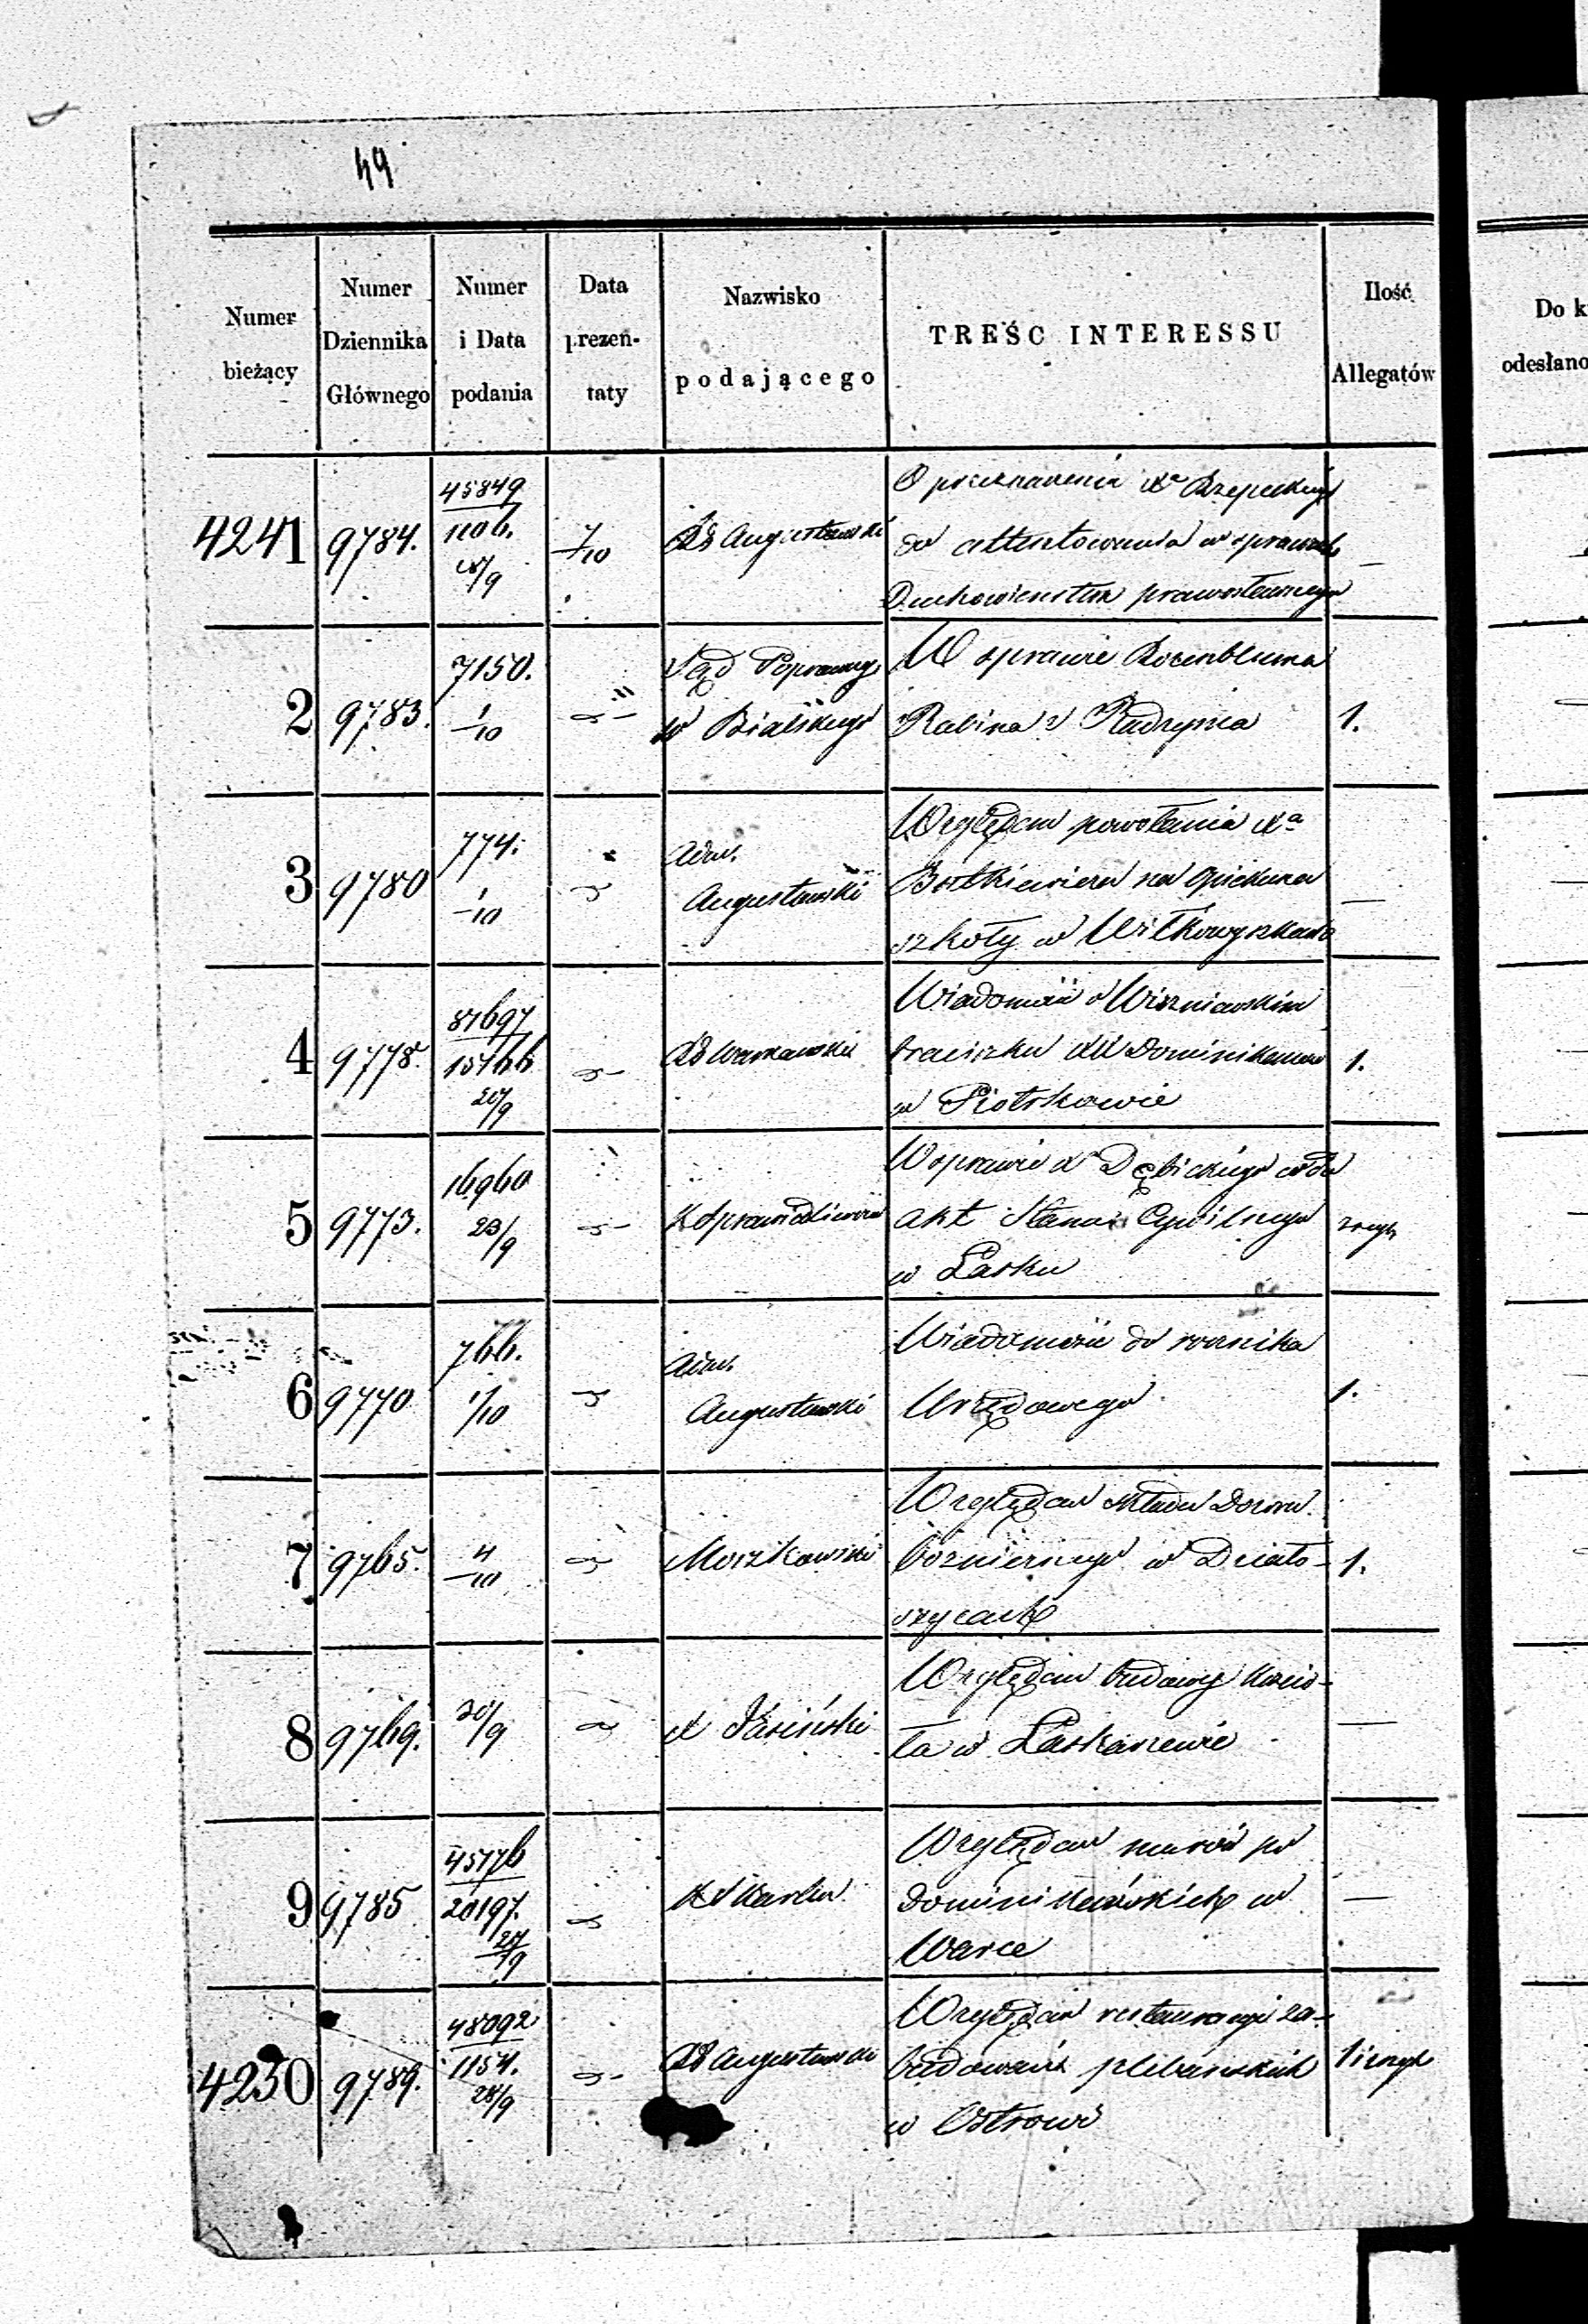 49
Numer bieżący
Numer Dziennika Głównego
Numer i Data podania
Data prezen- taty
Nazwisko podającego
TREŚC INTERESSU
Ilość Allegatów
Do k
odesłano
4241 9784. 45849
1106.
9
7/10
Augustowski
O przeznaczenia Xa Rzepeckiego
do w sprawach
Duchowieństwa prawosławnego
2 9783. 7150.
1/10
Sąd Poprawczy
w Bialskiego
W sprawie Rozenbluma
Rabina z Radzynia
1.
3 9780 774.
1/10
Adm.
Augustowski
Względem powołania Xa
na Opiekuna
szkoły w Wiłkowyszkach
—
4 9778. 81697
15766
20/9
Warszawski
Wiadomość o Wiszniewskim
braciszku XX Dominikanów
w Piotrkowie
1.
5 9773. 16960
23/9
K Sprawiedliwości
W sprawie Xa Dębickiego co do
akt Stanu Cywilnego
w Łasku
6 9770 766.
1/10
Adm.
Augustowski
Wiadomość do rocznika
Urzędowego
1.
7 9765. 4/10
Moszkowski
Względem składu Dozoru
bóżniczego w Działo-
szycach
1.
8 9769. 30/9
X Jasiński
Względem budowy kościo-
ła w Łaskarzewie
—
9 9785 45176
20197.
9
Względem murów po
dominikańskich w
Warce
—
4250 9789. 48092
1154.
28/9
Augustowski
Względem restauracyi za-
budowań plebańskich
w Ostrowi